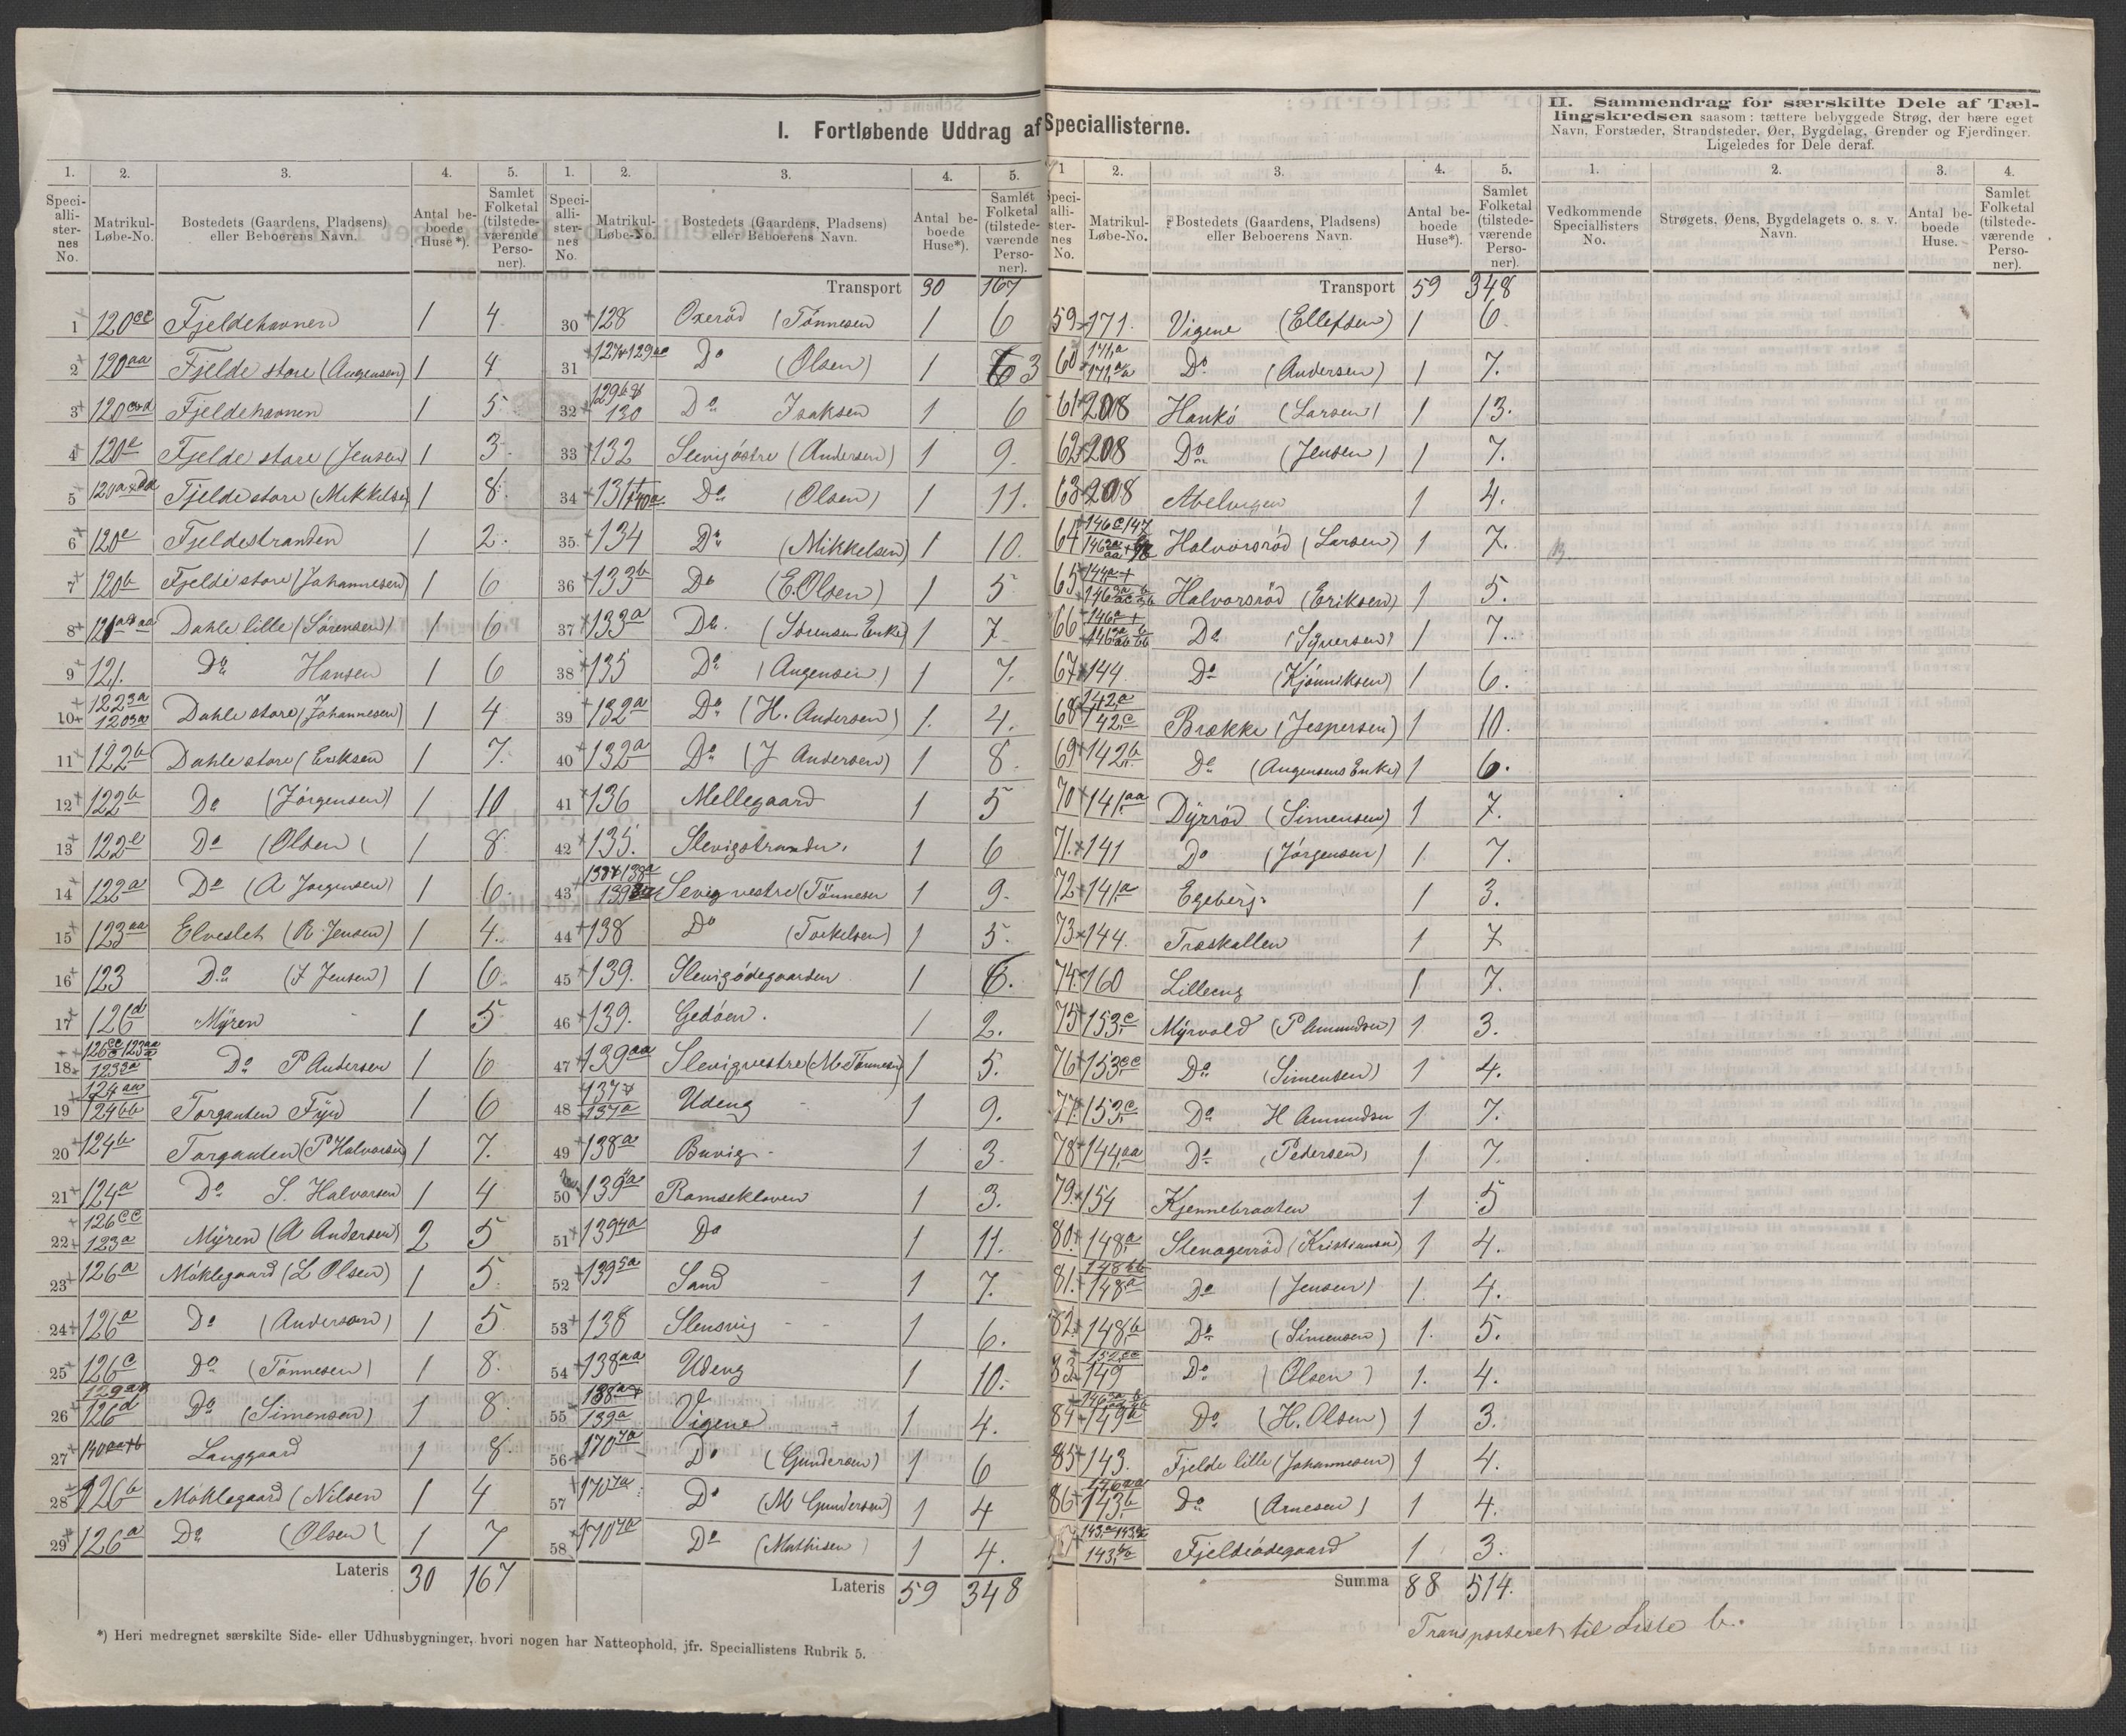 I. Fortløbende Uddrag af Speciallisterne.
II. Sammendrag for særskilte Dele af Tællingskredsen saasom: tættere bebyggede Strøg, der bære eget
Navn, Forstæder, Strandsteder, Øer, Bygdelag, Grender og Fjerdinger.
Ligeledes for Dele deraf.
1. 2. 3. 4. 5.
Speciallisternes No. Matrikul-Løbe-No. Bostedets (Gaardens, Pladsens) eller Beboerens Navn. Antal beboede Huse*). Samlet Folketal (tilstedeværende Personer).
1 120cc Fjeldehavnen 1 4
2 120aa Fjelde store (Augensen) 1 4
3 120 Fjeldehavnen 1 5
4 120e Fjelde store (Jensen) 1 3
5 Fjelde store (Mikkelsen) 1 8
6 120e Fjeldestranden 1 2
7 120b Fjelde store (Johannesen) 1 6
8 Dahle lille (Sørensen) 1 6
9 121. Do Hansen 1 6
10 122 3a 120 3a Dahle store (Johannesen) 1 4
11 122b Dahle store (Eriksen 1 7.
12 122b Do (Jørgensen) 1 10
13 122e Do (Olsen ( 1 8
14 122a Do (A Jørgensen) 1 6
15 123aa Elveslet (R Jensen) 1 4.
16 123 Do (J Jensen) 1 6
17 126d Myren 1 5
18 Do P Andersen 1 6
19 124aa 124bb Torgauten 1 6
20 124b Torgauten (P Halvorsen) 1 7.
21 124a Do S. Halvorsen 1 4
22 126cc 123a Myren (A Andersen) 2 5
23 126a Møklegaard (L Olsen) 1 5
24 126a Do (Andersen) 1 5
25 126c Do (Tønnesen) 1 8.
26 126d Do (Simensen) 1 8
27 Langgaard 1 8
28 126b Møklegaard (Nilsen 1 4
29 126a Do (Olsen ( 1 7
Lateris 30 167
1. 2. 3. 4. 5.
Speciallisternes No. Matrikul-Løbe-No. Bostedets (Gaardens, Pladsens) eller Beboerens Navn. Antal beboede Huse*). Samlet Folketal (tilstedeværende Personer).
Transport 30 167
30 128 Oxerød (Tønnesen 1 6
31 Do (Olsen) 1 3
32 130 Do Isaksen 1 6
33 132 Slevigøstre (Andersen) 1 9.
34 Do (Olsen) 1 11.
35 134 Do (Mikkelsen) 1 10.
36 133b Do (E. Olsen) 1 5
37 133a Do. (Sørensens Enke) 1 7
38 135 Do (Augensen) 1 7.
39 132a Do (H. Andersen) 1. 4.
40 132a Do (J Andersen) 1 8.
41 136 Mellegaard 1 5
42 135. Slevigstranden 1 6
43 Slevig vestre (Tønnesen 1 9.
44 138 Do (Torkelsen) 1 5.
45 139. Slevigødegaarden 1 6.
46 139. Gedøen. 1 2.
47 139aa Slevigvestre (M Tønnesen) 1 5.
48 137 137a Udeng 1 9.
49 138a Buvig 1 3
50 139 4a Ramseklaven 1 3.
51 139 4a Do 1 11.
52 139 5a Sand 1 7.
53 138 Slensvig 1 6.
54 138aa Udeng 1 10.
55 138a 139a Vigene 1 4.
56 170 7a Do (Gundersen) 1 6
57 170 7a Do (M Gundersen) 1 4
58 170 7a Do (Mathisen) 1 4.
Lateris 59 348
1 2. 3. 4. 5.
Speciallisternes No. Matrikul-Løbe-No. Bostedets (Gaardens, Pladsens) eller Beboerens Navn. Antal beboede Huse*). Samlet Folketal (tilstedeværende Personer).
Transport 59 348
59 171. Vigene (Ellefsen) 1 6
60 171,a Do (Andersen) 1 7.
61 208 Hankø (Larsen) 1 13.
62 208 Do (Jensen) 1 7.
63 208 Abelvigen 1 4.
64 Halvorsrød (Larsen) 1 7.
65 Halvorsrød (Eriksen) 1 5.
66 Do (Syversen) 1 7.
67 144 Do (Kjønniksen) 1 6.
68 142a 142c Brække (Jespersen) 1 10.
69 142b Do (Augensens Enke) 1 6.
70 141aa Dyrrød (Simensen) 1 7.
71. 141 Do (Jørgensen) 1. 7.
72 141a Egeberg 1 3.
73 144. Træskallen 1 7
74. 160 Lilleeng 1 7.
75 153c Myrvold (P Amundsen) 1 3.
76 153cc Do (Simensen) 1 4.
77. 153c Do H Amundsen 1 7.
78 144aa Do (Pedersen) 1 7.
79. 154 Kjennebraaten 1 5
80. 148a Slevagerrød (Kristiansen) 1 4.
81. 148bb 148a Do (Jensen) 1. 4.
82. 148b Do (Simensen) 1. 5.
83 149 Do (Olsen) 1. 4.
84 149b Do (H. Olsen) 1 3.
85 143. Fjelde lille (Johannesen) 1 4.
86 143b Do (Arnesen) 1 4.
87 Fjeldeødegaard 1 3.
Summa 88 514.
Transporteret til Liste b.
1. 2. 3. 4.
Vedkommende Speciallisters No. Strøgets, Øens, Bygdelagets o. s. v. Navn. Antal beboede Huse. Samlet Folketal (tilstedeværende Personer).
*) Heri medregnet særskilte Side- eller Udhusbygninger, hvori nogen har Natteophold, jfr. Speciallistens Rubrik 5.